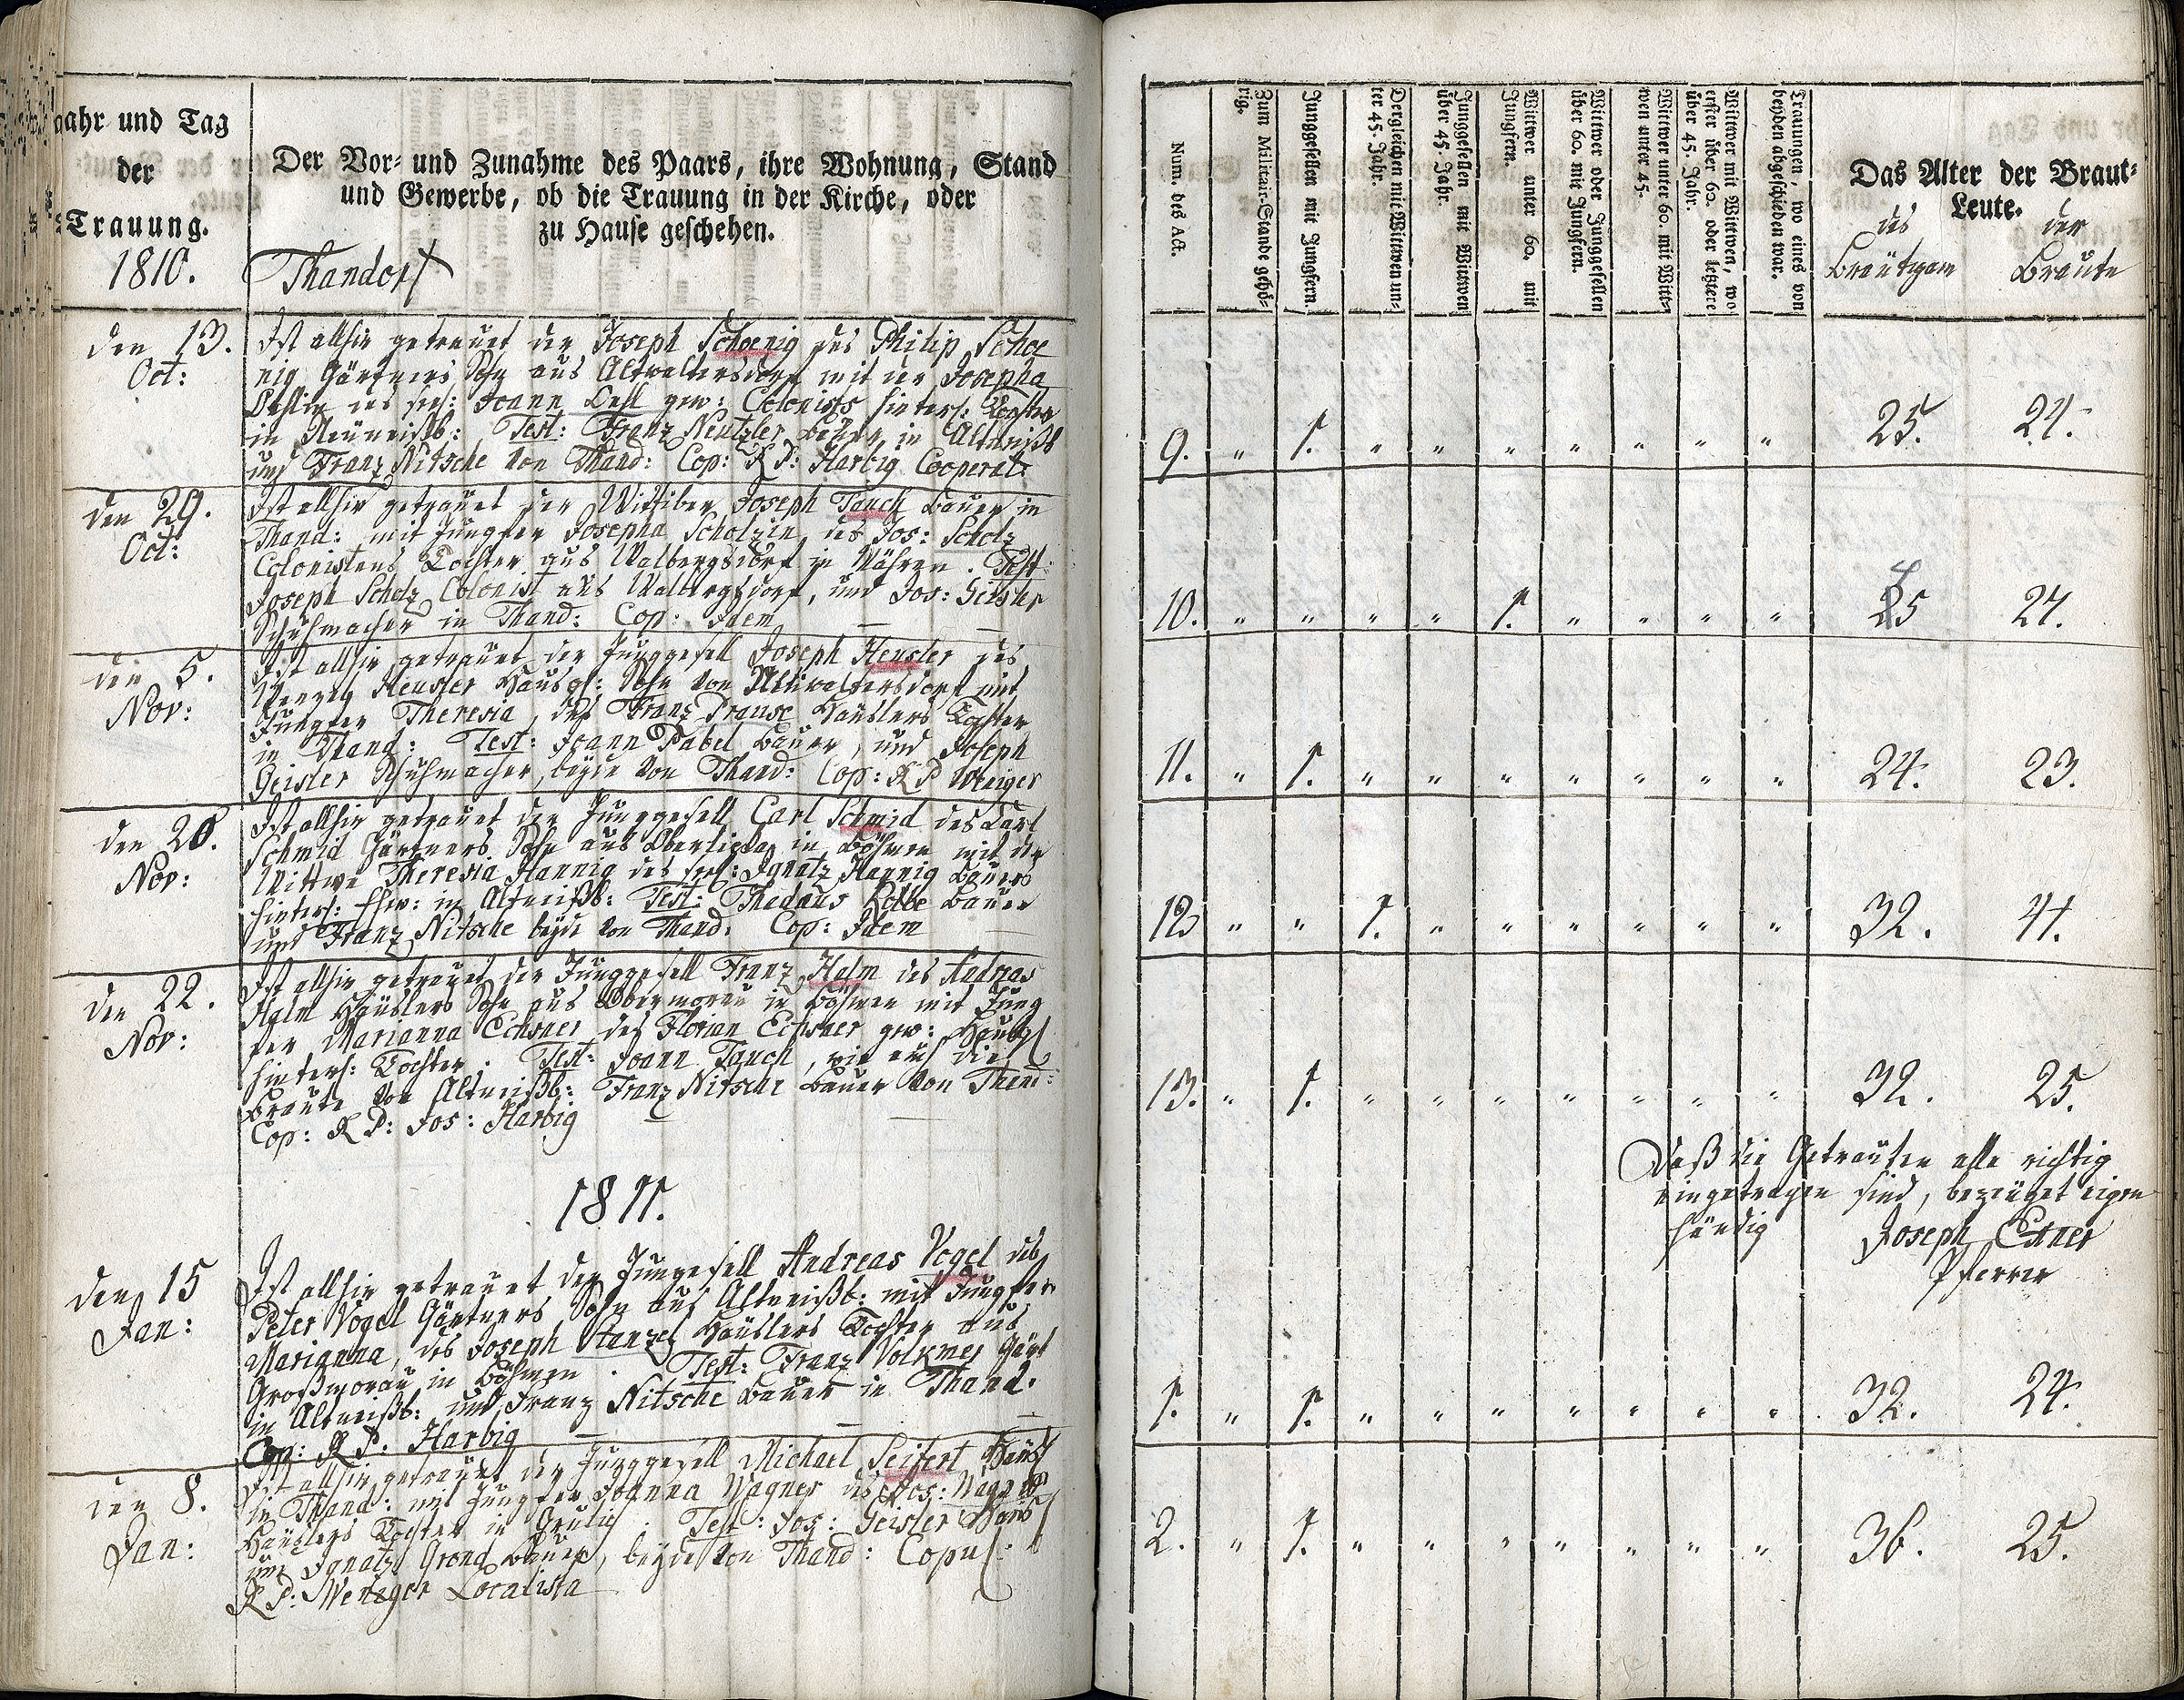 Jahr und Tag
der
Trauung.
1810.
Der Vor- und Zunahme des Paars, ihre Wohnung, Stand
und Gewerbe, ob die Trauung in der Kirche, oder
zu Hause geschehen.
Thandorf
den 13.
Oct:
Ist allhir getrauet der Joseph Schoenig des Philip Schoe
nig Gärtners Sohn aus Altwaltersdorf mit der Josepha
des sel: Joann Oehl gew: Colonists hinterl: Tochter
in Neüneißb: Test: Franz Neutzler Bauer in Altneißb
und Franz Nitsche von Thand: Cop: R P: Harbig Cooperat:
den 29.
Oct:
Ist allhir getrauet der Wittiber Joseph Tauch Bauer in
Thand: mit Jungfer Josepha Scholzin des Jos: Scholz
Colonistens Tochter aus Walbergsdorf in Mähren. Test:
Joseph Scholz Colonist aus Walbergsdorf, und Jos: Geisler
Schuhmacher in Thand: Cop: Idem
den 5.
Nov:
Ist allhir getrauet der Junggesell Joseph Heusler des
Wenzel Heusler Sohn von Altwaltersdorf mit
Jungfer Theresia, des Franz Prause Häuslers Tochter
in Thand: Test: Joann Pabel Bauer, und Joseph
Geisler Schuhmacher, beyde von Thand: Cop: R P Weniger
den 20.
Nov:
Ist allhir getrauet der Junggesell Carl Schmid des Carl
Schmid Gärtners Sohn aus Oberlipka in Böhmen mit der
Wittwe Theresia Hannig des sel: Ignatz Hannig Bauers
hinterl: Ehw: in Altneißb: Test: Thadaus Kolbe Bauer
und Franz Nitsche beyde von Thand: Cop: Idem
den 22.
Nov:
Ist allhir getrauet der Junggesell Franz Halm des Andreas
Halm Häuslers Sohn aus Obermorau in Böhmen mit Jung
fer Marianna Echsner des Florian Echsner gew: Häusl
hinterl: Tochter. Test: Joann Tauch, wie auch die
Braute von Altneißb: Franz Nitsche Bauer von Thand:
Cop: R P: Jos: Harbig
1811.
den 15
Jan:
Ist allhir getrauet der Jungesell Andreas Vogel des
Peter Vogel Gärtners Sohn aus Altneißb: mit Jungfer
Marianna, des Joseph Stanzel Häuslers Tochter aus
Großmorau in Böhmen. Test: Franz Volkmer Gärt
in Altneißb: und Franz Nitsche Bauer in Thand.
Cop: R P. Harbig
den 8.
Jan:
Ist allhir getrauet der Junggesell Michael Seifert Häusl
in Thand: mit Jungfer Joanna Wagner des Jos: Wagner
Häuslers Tochter in Grulich. Test: Jos: Geisler Häusl
und Ignatz Grond Bauer, beyde von Thand: Copul:
R P: Weniger Localista
Num. des Act.
Zum Militair-Stande gehö-
rig.
Junggesellen mit Jungfern.
Dergleichen mit Wittwen un-
ter 45. Jahr.
Junggesellen mit Wittwen
über 45. Jahr.
Wittwer unter 60. mit
Jungfern.
Wittwer oder Junggesellen
über 60. mit Jungfern.
Wittwer unter 60. mit Witt-
wen unter 45.
Wittwer mit Wittwen, wo
erster über 60. oder letztere
über 45. Jahr.
Trauungen, wo eines von
beyden abgeschieden war.
Das Alter der Braut-
Leute.
des
Bräutgam
der
Braute
9. " 1. " " " " " " " 25. 21.
10. " " " " 1. " " " " 25 24.
11. " 1. " " " " " " " 24. 23.
12 " " 1. " " " " " " 32. 41.
13. " 1. " " " " " " " 32. 25.
Daß die Getrauten alle richtig
eingetragen sind, bezeüget eigen
händig
Joseph Exner
Pfarrer
1. " 1. " " " " " " " 32. 24.
2. " 1. " " " " " " " 36. 25.